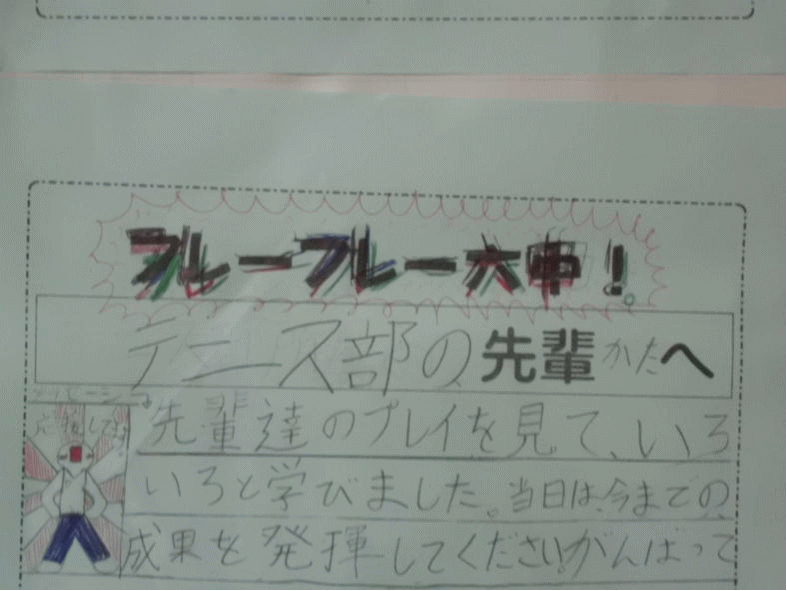 フレーフレー大中！
テニース部の先輩かたへ
応援してます
先輩達のプレイを見て、いろ
いろと学びました。当日は、今までの
成果を発揮してくださいがんばって